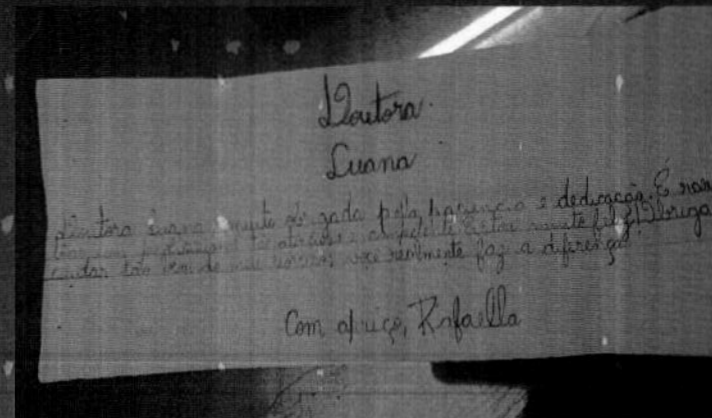 Doutora
Luana
Doutora Luana muito obrigada pela paciencia e dedicação. É
profissional tão atenciosa e competente Estou muito feliz! Obriga
cuidar tão bem do meu sorriso, você realmente faz a diferença
Com apreço, Rafaella